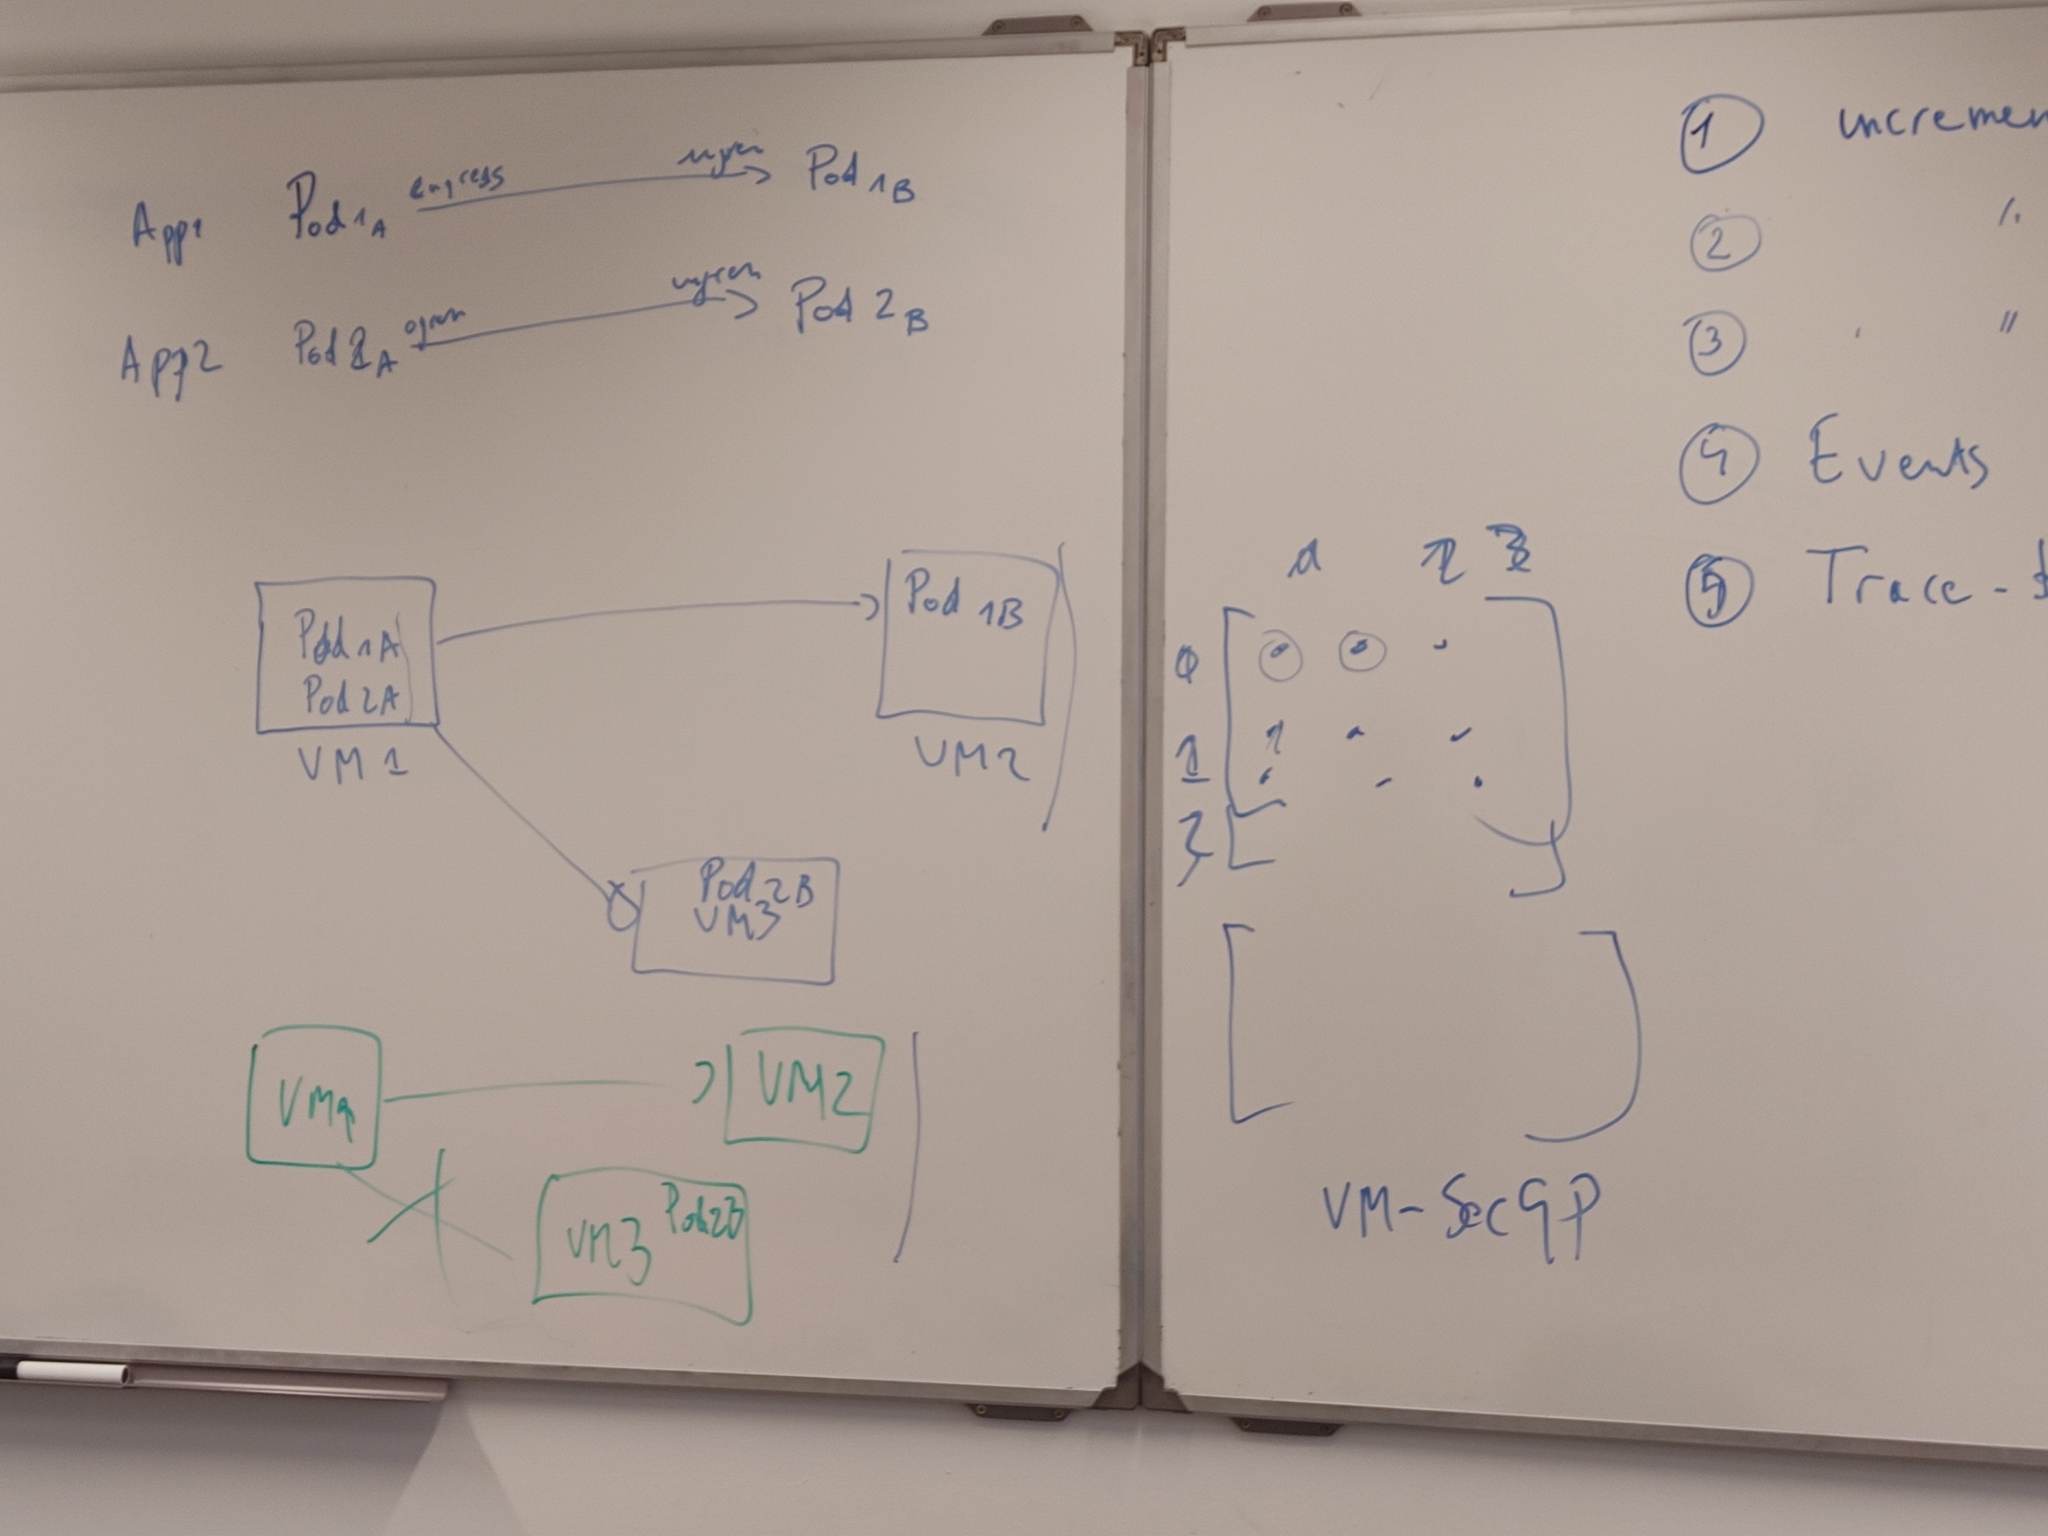 App1 Pod 1A egress ingress Pod 1B
App2 Pod 2A egress ingress Pod 2B
Pod 1A
Pod 2A
VM 1
Pod 1B
VM2
Pod 2B
VM3
VM1
VM2
VM3 Pod2B
1 2 3
0
1
2
VM-SecGP
① incremen
②
③ "
④ Events
⑤ Trace-